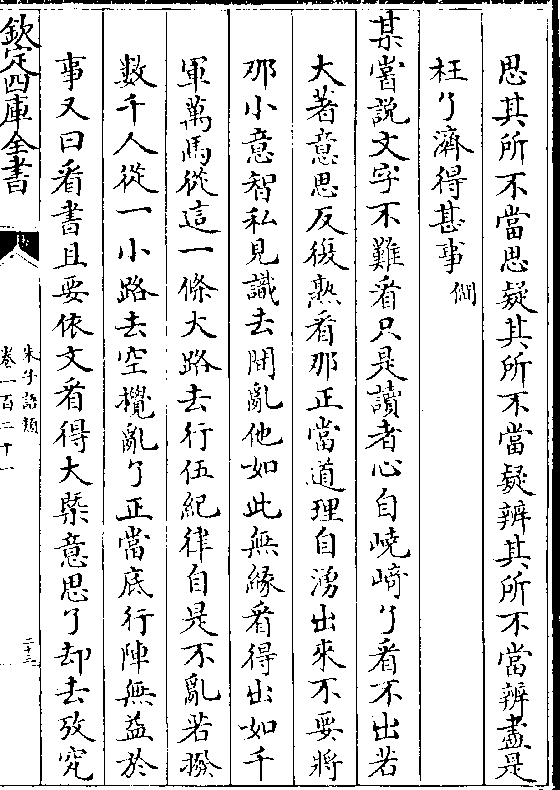 思其所不當思疑其所不當疑辨其所不當辨盡是
枉了濟得甚事 僩
某嘗說文字不難看只是讀者心自嶢崎了看不出若
大著意思反復熟看那正當道理自湧出來不要將
那小意智私見識去閒亂他如此無緣看得出如千
軍萬馬從這一條大路去行伍紀律自是不亂若撥
數千人從一小路去空攪亂了正當底行陣無益於
事又曰看書且要依文看得大槩意思了却去攷究
欽定四庫全書
朱子語類
卷一百二十一
二十三